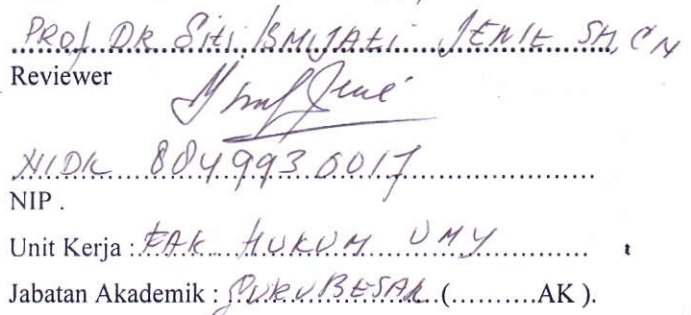 PROF DR SITI ISMIJATI JENIE SH, CN
Reviewer
NIDK 8849930017
NIP .
Unit Kerja : FAK HUKUM UMY
Jabatan Akademik : GURU BESAR (..........AK ).